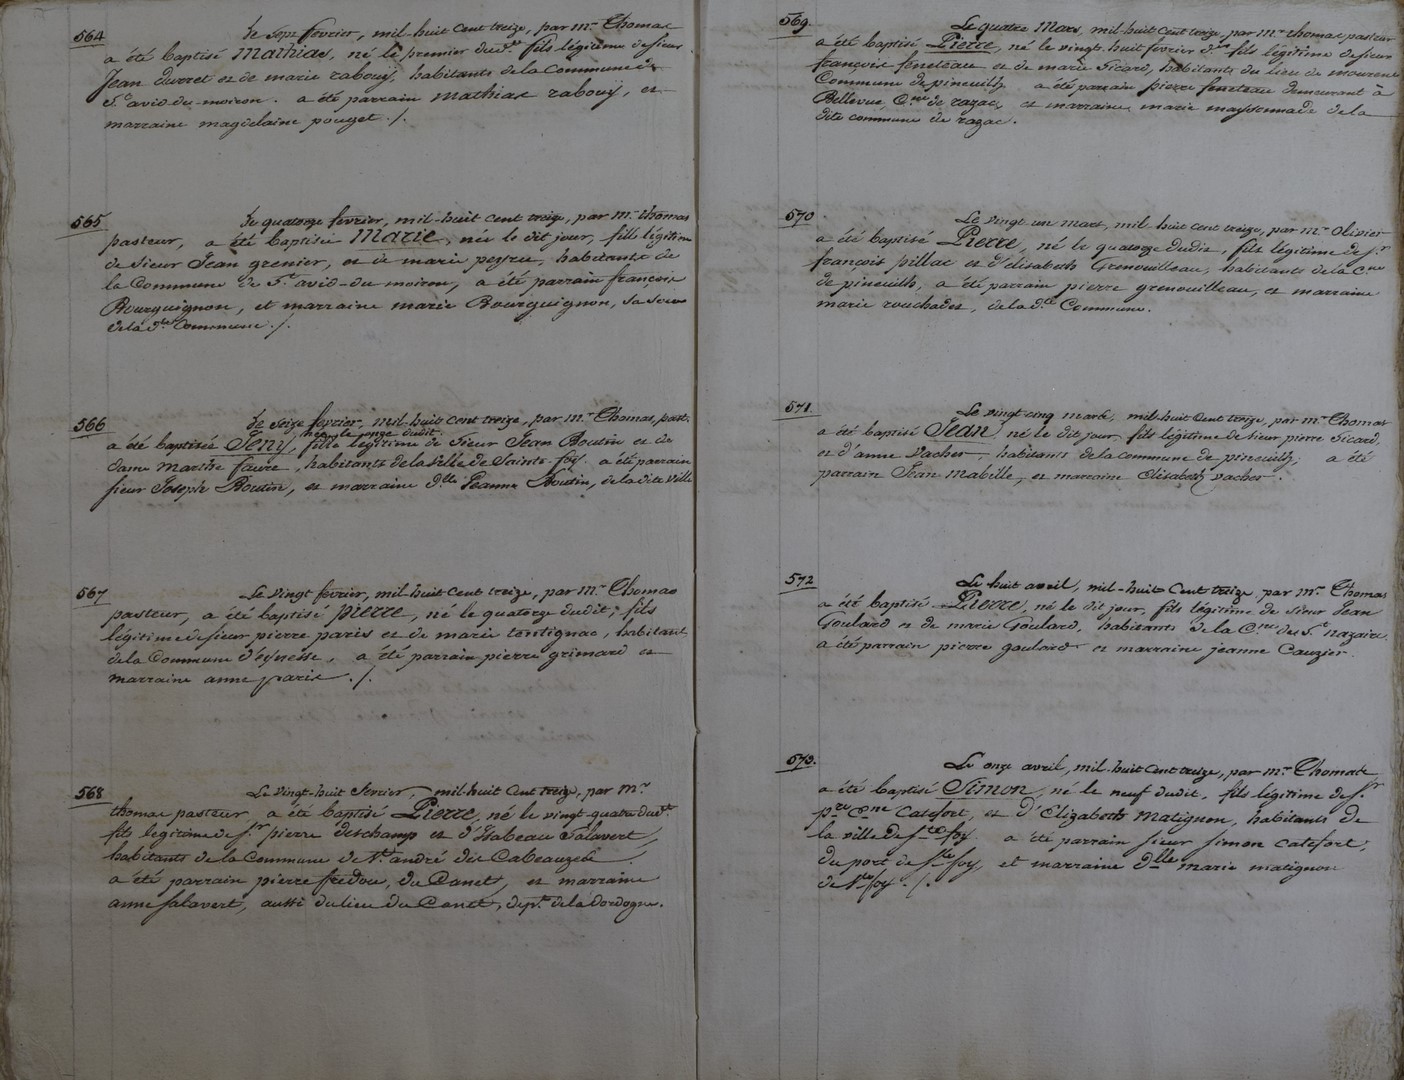 564
Le Sept fevrier, mil-huit Cent treize, par mr. Thomas
a été baptisé Mathias, né le premier dud.t fils légitime de sieur
Jean durret et de marie rabouÿ, habitants de la Commune de
St avid-du-moiron. a été parrain mathias rabouÿ, et
marraine magdelaine pouget ./.
565
Le quatorze fevrier, mil-huit cent treize, par mr. thomas
pasteur, a été baptisée Marie, née le dit jour, fille légitime
de sieur Jean grenier, et de marie peyru, habitants de
la Commune de St. avid-du moiron, a été parrain françois
Bourguignon, et marraine marie Bourguignon, sa soeur
de la d.te Commune ./.
566
Le Seize fevrier, mil-huit cent treize, par mr. Thomas, past.
née le onze dudit
a été baptisée Jeny, fille légitime de Sieur Jean Boutin et de
dame Marthe faure, habitants de la ville de Sainte-foy. a été parrain
sieur Joseph Boutin, et marraine d.lle Jeanne Boutin, de la dite Ville
567
Le vingt fevrier, mil-huit Cent treize, par mr. Thomas
pasteur, a été baptisé pierre, né le quatorze dudit; fils
légitime de sieur pierre paris et de marie tontignac, habitant
de la Commune d'eynesse, a été parrain pierre grimard et
marraine anne paris ./.
568
Le vingt-huit Fevrier, mil-huit Cent treize, par mr
thomas pasteur, a été baptisé Pierre, né le vingt quatre dud.t
fils légitime de s.r pierre deschamp et d'Isabeau Salavert,
habitants de la Commune de St. andré de Cabeauzele.
a été parrain pierre fredou, du Canet, et marraine
anne salavert, aussi du lieu du Canet, dept. de la dordogne.
569.
Le quatre Mars, mil-huit Cent treize, par mr. thomas pasteur
a été baptisé, Pierre, né le vingt-huit fevrier d.er fils légitime de sieur
françois feneteau et de marie Sicard, habitants du lieu de
Commune de pineuilh, a été parrain pierre feneteau demeurant à
Bellevue, C.ne de razac, et marraine marie mayssonnade de la
dite commune de razac.
570
Le vingt un mars, mil huit Cent treize, par mr. Olivier
a été baptisé Pierre, né le quatorze dudit, fils légitime de s.r
françois pillac et d'élisabeth Grenouilleau, habitants de la C.ne
de pineuilh, a été parrain pierre grenouilleau, et marraine
marie rouchades, de la d.te Commune.
571
Le vingt-cinq mars, mil-huit Cent treize, par mr Thomas
a été baptisé Jean, né le dit jour, fils légitime de sieur pierre Sicard
et d'anne Vacher, habitants de la commune de pineuilh; a été
parrain Jean Mabille, et marraine Elisabeth vacher.
572
Le huit avril, mil-huit Cent treize, par mr. Thomas
a été baptisé Pierre, né le dit jour, fils légitime de sieur Jean
Goulard et de marie Goulard, habitants de la C.ne de St nazaire
a été parrain pierre goulard et marraine jeanne Cauzier.
573.
Le onze avril, mil-huit Cent treize, par mr. Thomas
a été baptisé Simon, né le neuf dudit, fils légitime de s.r
p.re Catefort, et d'Elizabeth Matignon, habitants de
la ville de ste foy a été parrain sieur simon catefort,
du port de ste foy, et marraine d.lle marie matignon
de ste foy ./.